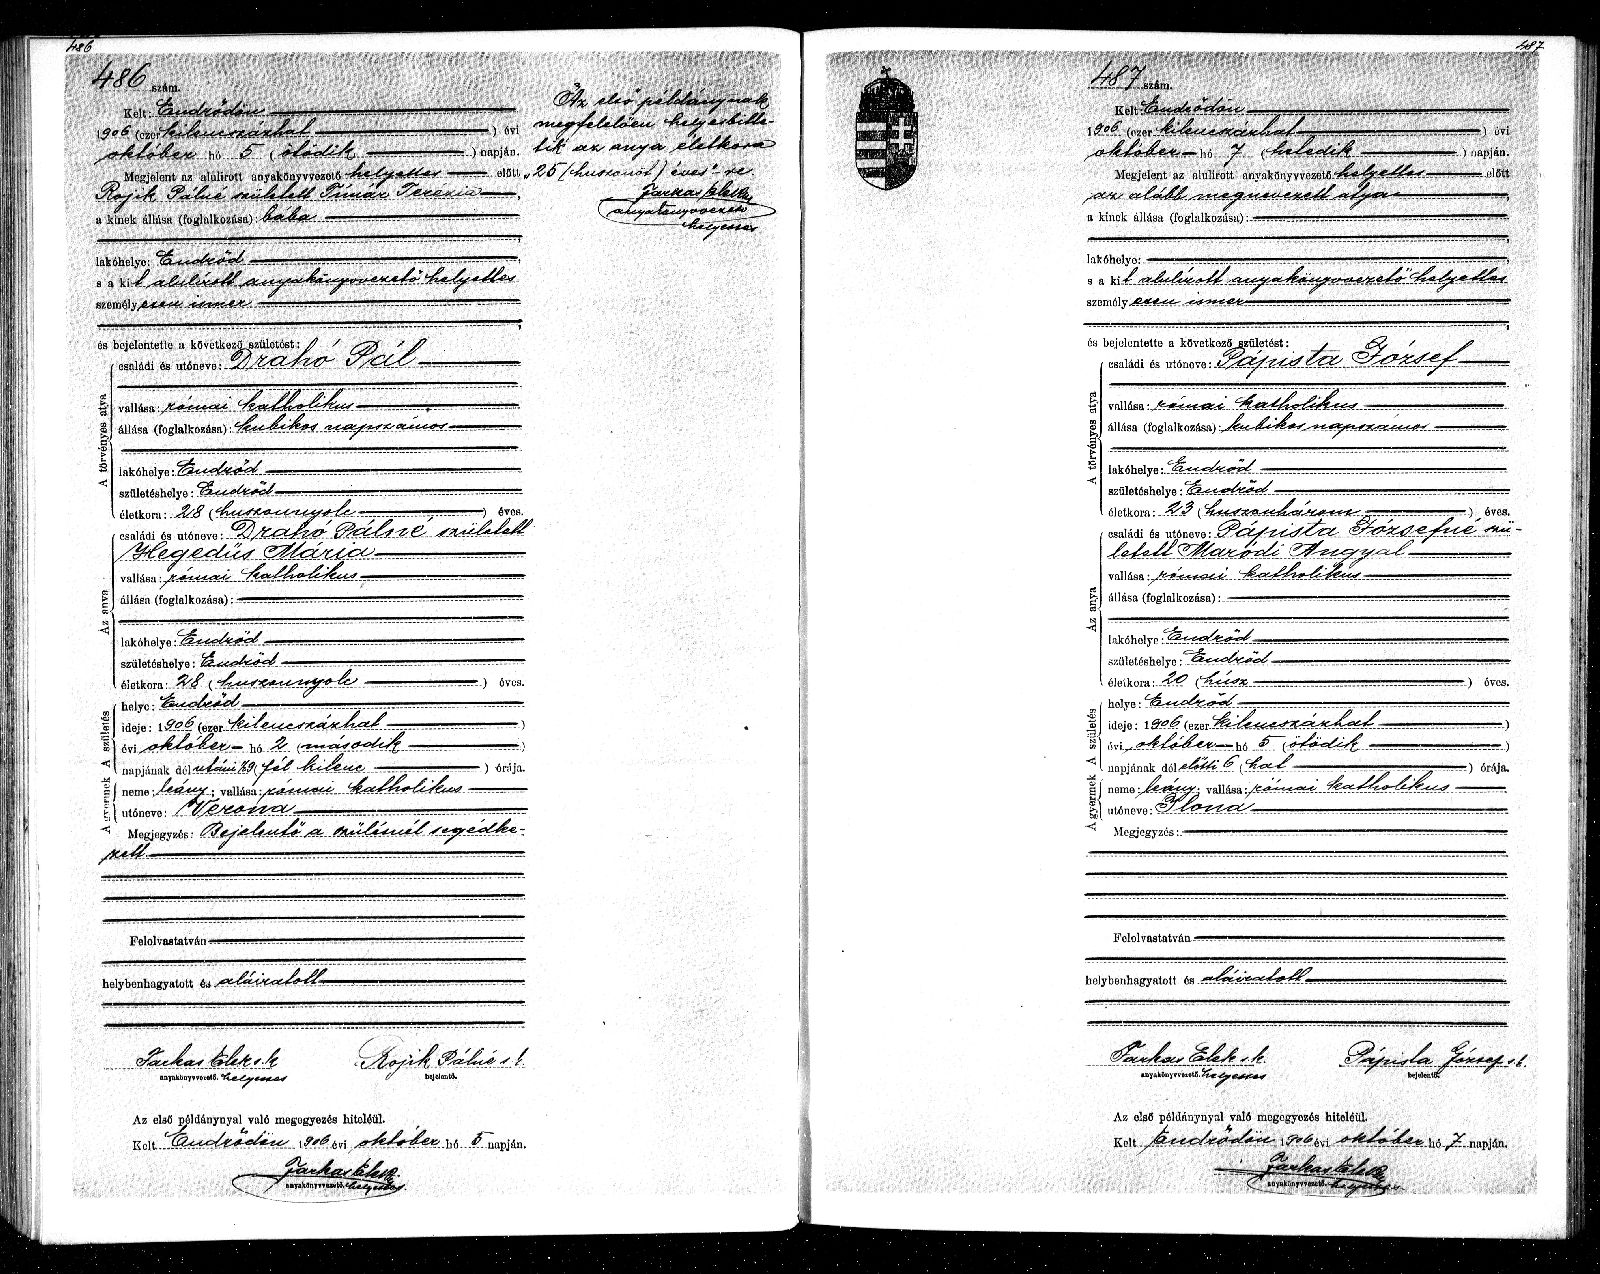 486
486 szám.
Kelt: Endrődön
1906 (ezer kilencszázhat) évi
október hó 5 (ötödik) napján.
Megjelent az alulirott anyakönyvvezető helyettes előtt
Rojik Pálné született Timár Terézia,
a kinek állása (foglalkozása): bába
lakóhelye: Endrőd
s a kit alulírott anyakönyvvezető helyettes
személyesen ismer
és bejelentette a következő születést:
A törvényes atya
családi és utóneve: Drahó Pál
vallása: római katholikus
állása (foglalkozása): kubikos napszámos
lakóhelye: Endrőd
születéshelye: Endrőd
életkora: 28 (huszonnyolc) éves.
Az anya
családi és utóneve: Drahó Pálné született
Hegedüs Mária
vallása: római katholikus
állása (foglalkozása):
lakóhelye: Endrőd
születéshelye: Endrőd
életkora: 28 (huszonnyolc) éves.
A születés
helye: Endrőd
ideje: 1906 (ezer kilencszázhat)
évi október hó 2 (második)
napjának délutáni ½9 (fél kilenc) órája.
A gyermek
neme: leány; vallása: római katholikus
utóneve: Verona
Megjegyzés: Bejelentő a szülésnél segédke-
zett
Felolvastatván
helybenhagyatott és aláiratott
Farkas Elek s.k. Rojik Pálné s.k.
anyakönyvvezető. helyettes bejelentő.
Az első példánynyal való megegyezés hiteléül.
Kelt Endrődön 1906 évi október hó 5 napján.
Farkas Elek
anyakönyvvezető. helyettes
Az első példánynak
megfelelően helyesbitte-
tik az anya életkora
"25 (huszonöt) éves"-re.
Farkas Elek
anyakönyvvezető
helyettes
487
487 szám.
Kelt: Endrődön
1906 (ezer kilencszázhat) évi
október hó 7 (hetedik) napján.
Megjelent az alulirott anyakönyvvezető helyettes előtt
az alább megnevezett atya
a kinek állása (foglalkozása):
lakóhelye:
s a kit alulírott anyakönyvvezető helyettes
személyesen ismer
és bejelentette a következő születést:
A törvényes atya
családi és utóneve: Pápista József
vallása: római katholikus
állása (foglalkozása): kubikos napszámos
lakóhelye: Endrőd
születéshelye: Endrőd
életkora: 23 (huszonhárom) éves.
Az anya
családi és utóneve: Pápista Józsefné szü-
letett Maródi Angyal
vallása: római katholikus
állása (foglalkozása):
lakóhelye: Endrőd
születéshelye: Endrőd
életkora: 20 (húsz) éves.
A születés
helye: Endrőd
ideje: 1906 (ezer kilencszázhat)
évi október hó 5 (ötödik)
napjának délelőtti 6 (hat) órája.
A gyermek
neme: leány; vallása: római katholikus
utóneve: Ilona
Megjegyzés:
Felolvastatván
helybenhagyatott és aláiratott
Farkas Elek s.k. Pápista József s.k.
anyakönyvvezető. helyettes bejelentő.
Az első példánynyal való megegyezés hiteléül.
Kelt Endrődön 1906 évi október hó 7 napján.
Farkas Elek
anyakönyvvezető. helyettes